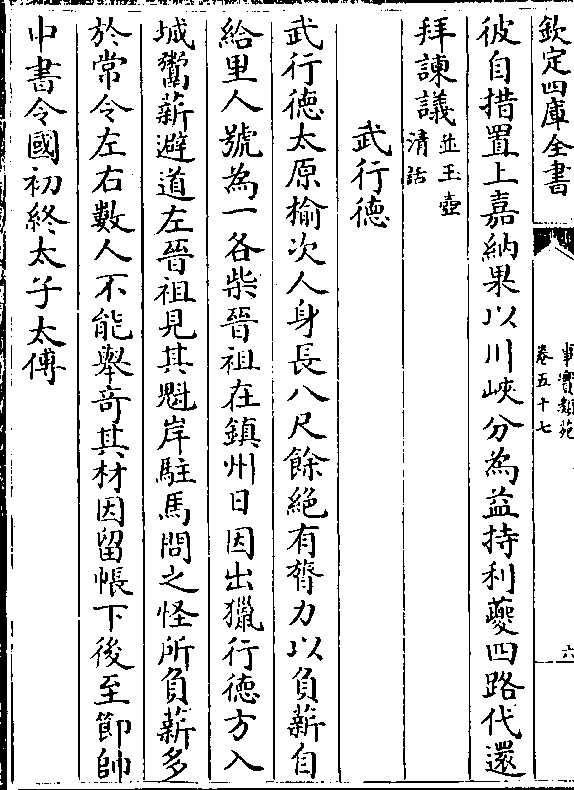 欽定四庫全書
事實類苑
卷五十七
六
彼自措置上嘉納果以川峽分為益持利夔四路代還
拜諫議並玉壺清話
武行德
武行德太原榆次人身長八尺餘絕有膂力以負薪自
給里人號為一各柴晉祖在鎮州日因出獵行德方入
城鬻薪避道左晉祖見其魁岸駐馬問之怪所負薪多
於常令左右數人不能舉竒其材因留帳下後至節帥
中書令國初終太子太傅